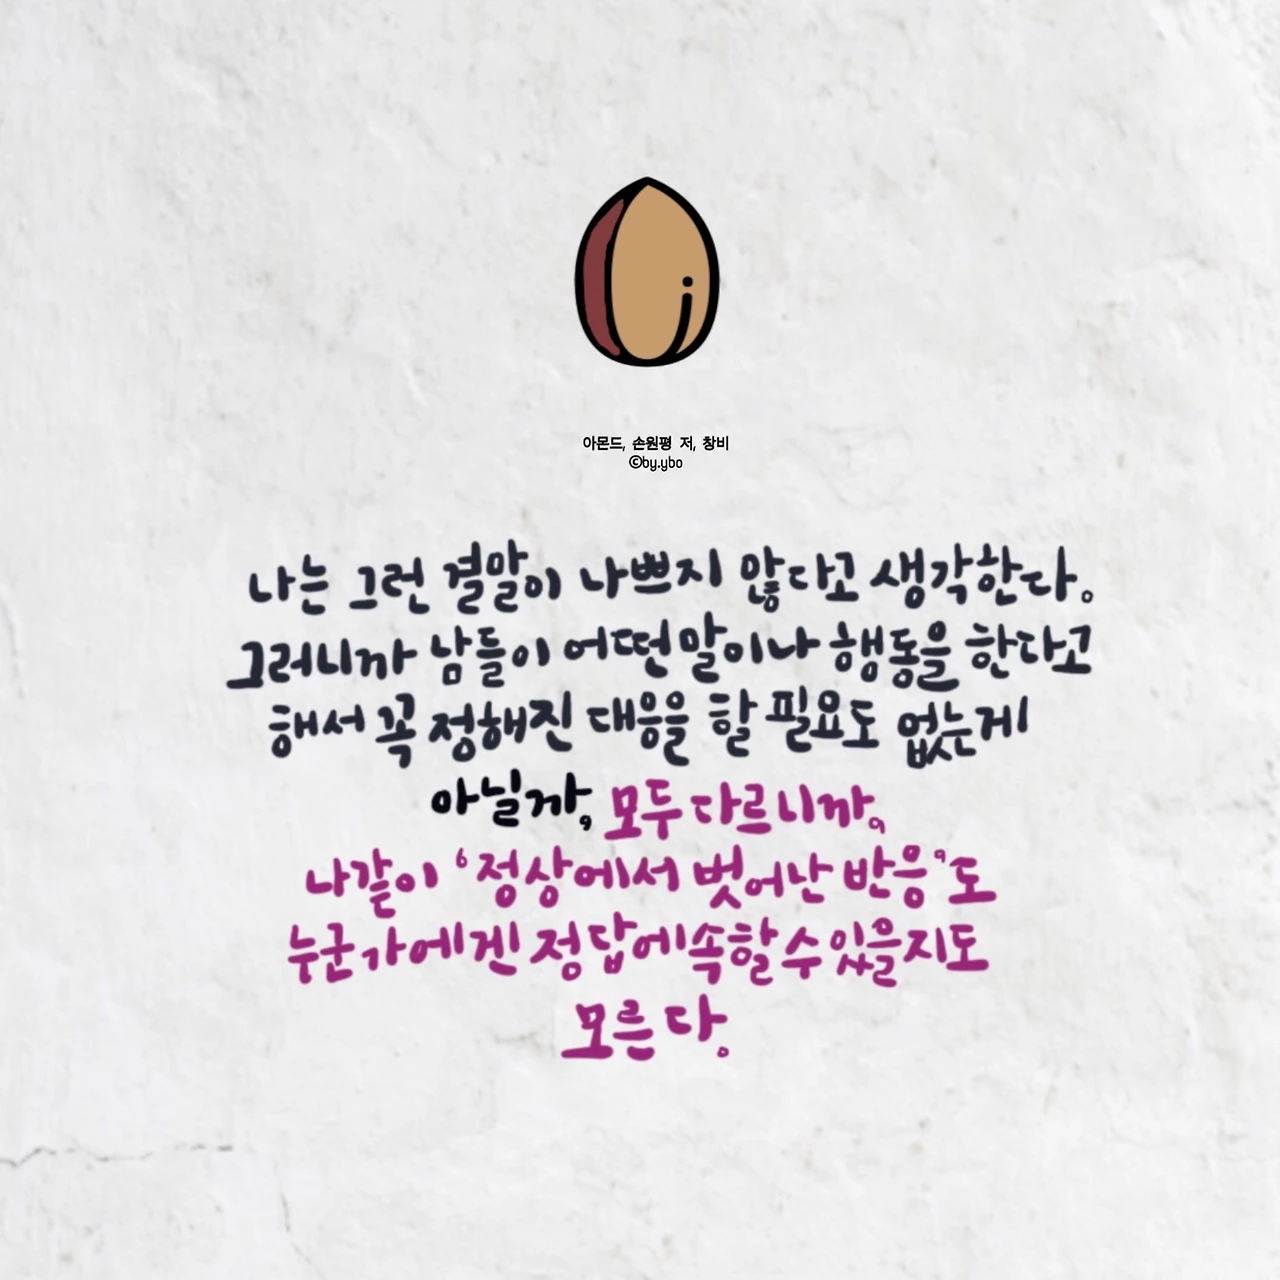 아몬드, 손원평 저, 창비
©by.ybo
나는 그런 결말이 나쁘지 않다고 생각한다.
그러니까 남들이 어떤 말이나 행동을 한다고
해서 꼭 정해진 대응을 할 필요도 없는게
아닐까, 모두 다르니까,
나같이 '정상에서 벗어난 반응'도
누군가에겐 정답에 속할 수 있을지도
모른다.